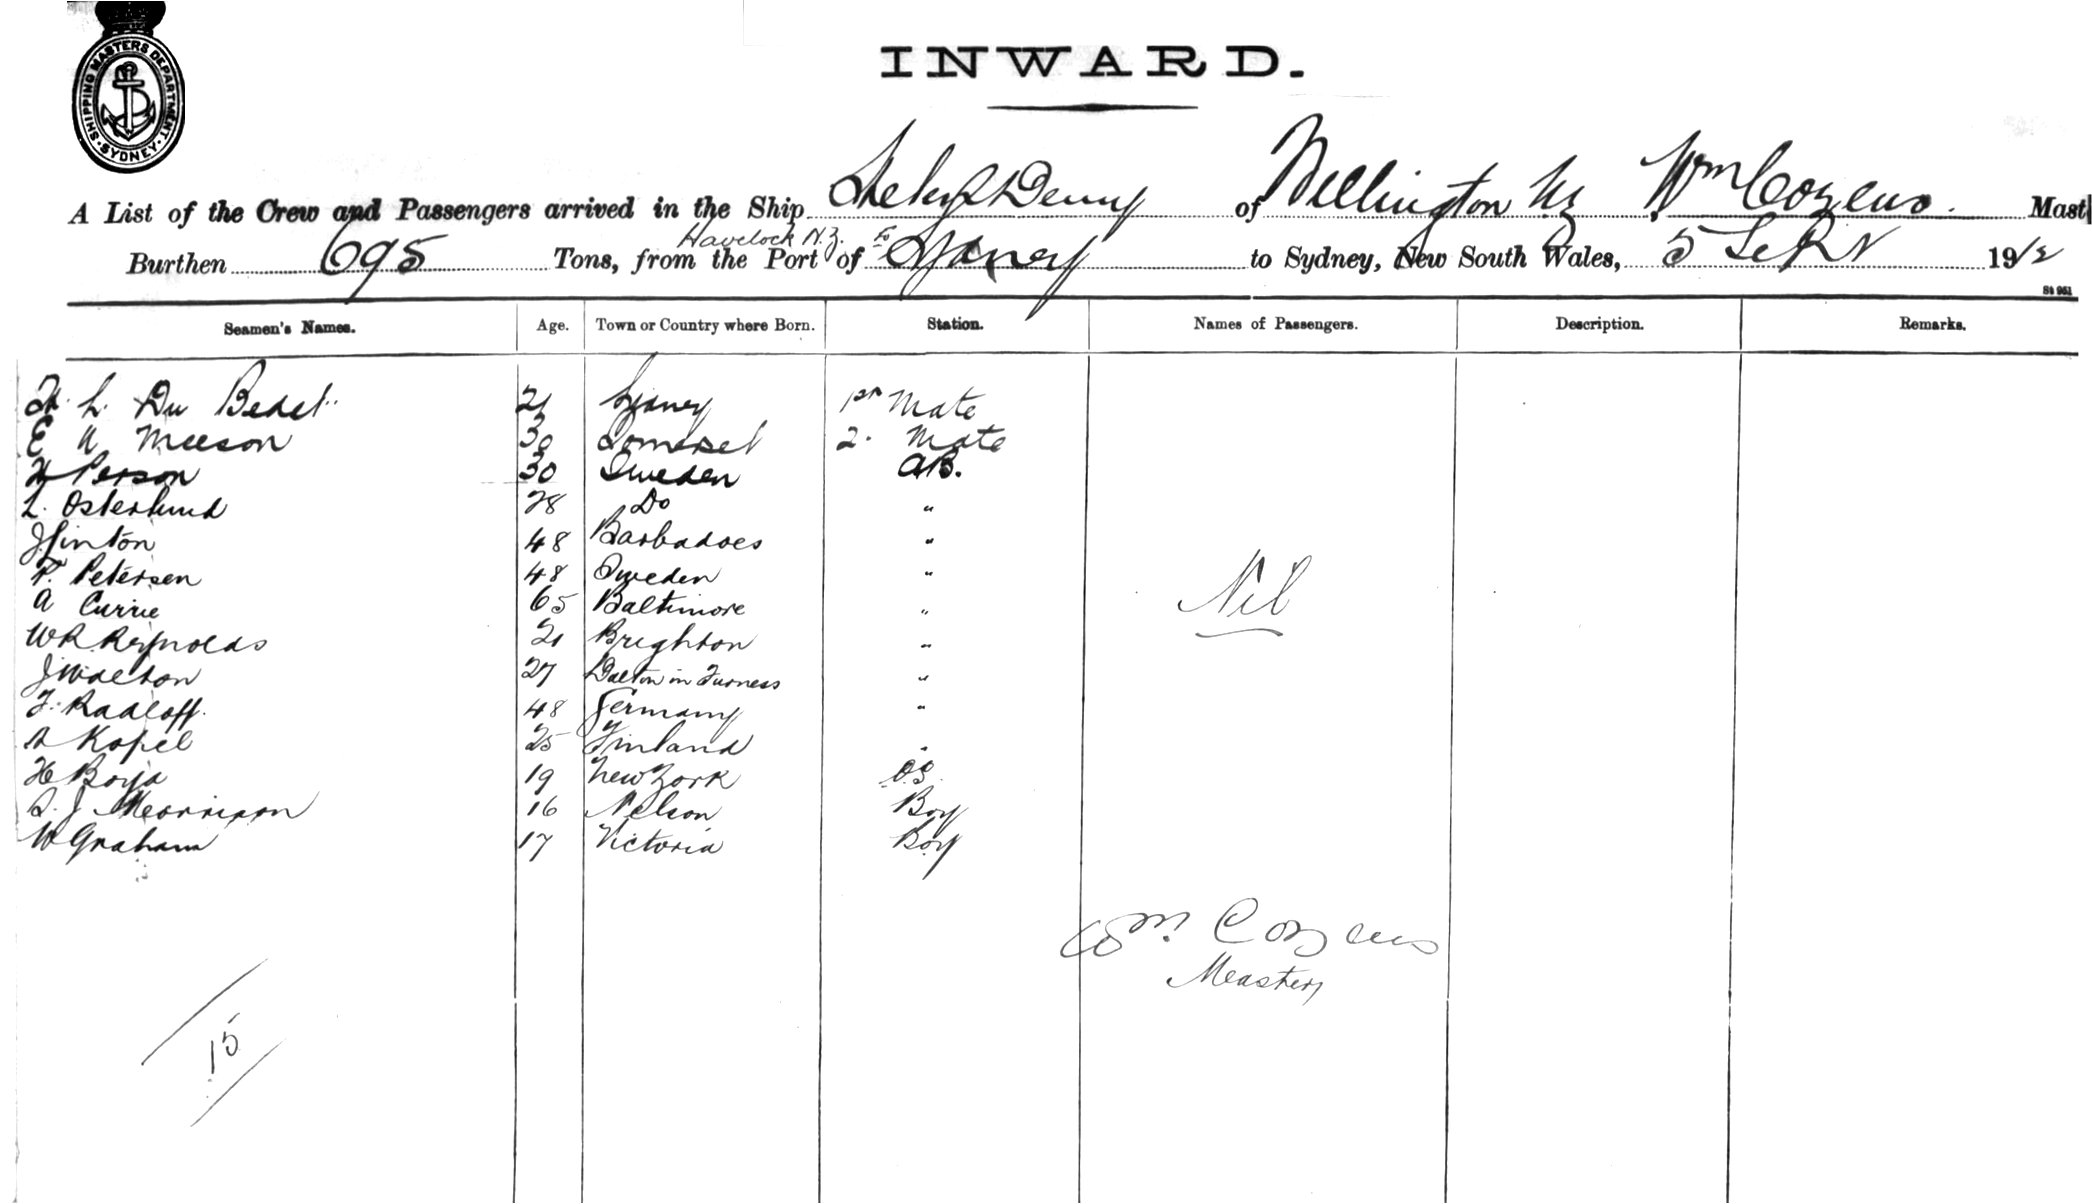 SHIPPING MASTERS DEPARTMENT
SYDNEY
INWARD.
A List of the Crew and Passengers arrived in the Ship Helen Denny of Wellington NZ Wm Cozens Mast
Havelock N.Z. to
Burthen 695 Tons, from the Port of Sydney to Sydney, New South Wales, 5 Sept 1912
St 951
Seamen's Names. Age. Town or Country where Born. Station. Names of Passengers. Description. Remarks.
L. Du 21 Sydney 1st Mate
E A Meeson 30 Somerset 2. Mate
Person 30 Sweden AB.
L. Osterlund 28 Do "
J Linton 48 Barbadoes "
P. Petersen 48 Sweden "
Nil
A Currie 65 Baltimore "
W R Reynolds 21 Brighton "
J Walton 27 Dalton in Furness "
F. Radloff. 48 Germany "
A Kopel 25 Finland "
H Boyd 19 New York O.S.
S. J. Morrison 16 Nelson Boy
W Graham 17 Victoria Boy
Wm. Cozens
Master
15